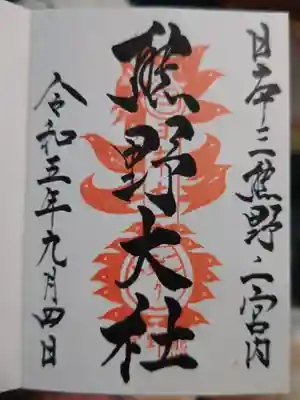 日本三熊野ノ一宮内
熊野大社
令和五年九月四日